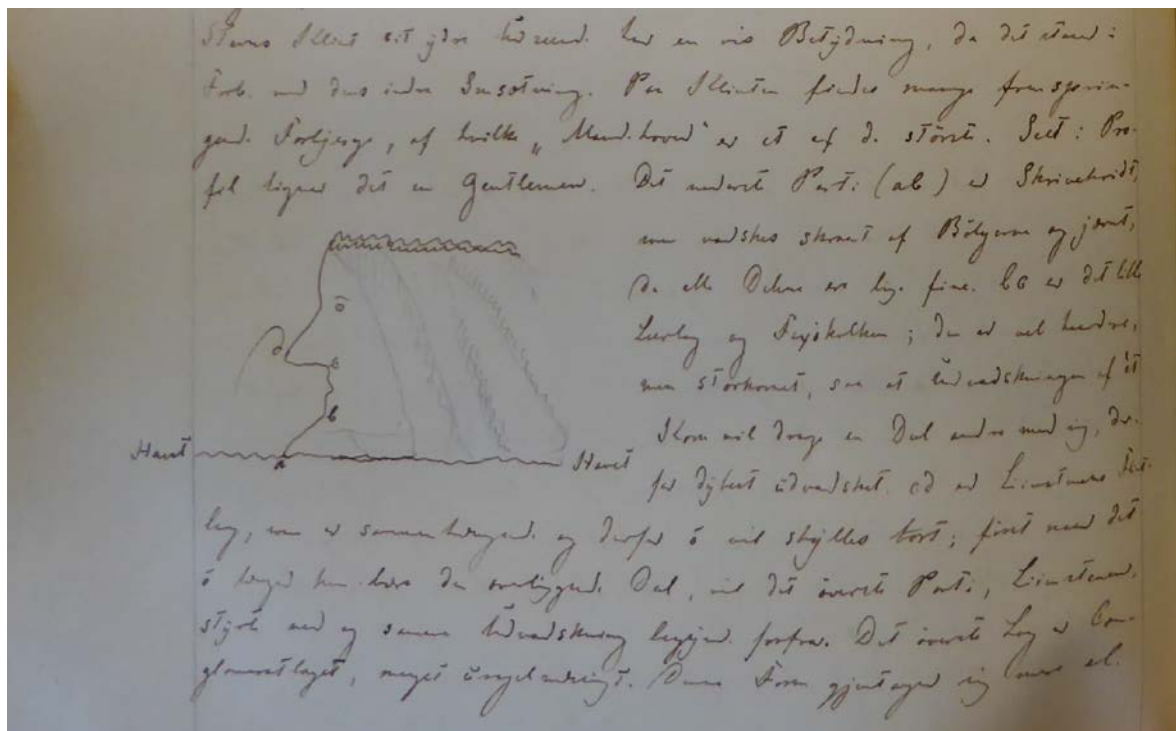 Stevns Klint sit ydre Udseend. har en vis Betydning, da det staar i
Forb. med dens indre Sammensætning. Paa Klinten findes mange fremsprin-
gend. Forbjerge, af hvilke „Mandehoved“ er et af d. störste. Seet i Pro-
fil ligner det en Gentleman. Det nederste Parti (ab) er Skrivekridt,
som vadskes skraat af Bölgerne og jævnt,
da alle Delene ere lige fine. bc er det lille
Leerlag og Faxekalken; den er vel haardere,
men storkornet, saa at Udvadskningen af ét
Korn vil drage en Del andre med sig, der-
for dybest udvadsket. cd er Limstenens Flint-
lag, som er sammenhængend. og derfor ö vil skylles bort; först naar det
ö længer kan bære den overliggend. Del, vil det överste Parti, Limstenen,
styrte ned og samme Udvadskning begynd. forfra. Det överste Lag er Con-
glomeratlaget, meget uregelmæssigt. Denne Form gjentager sig over al.
d
c
b
a
Havet
Havet